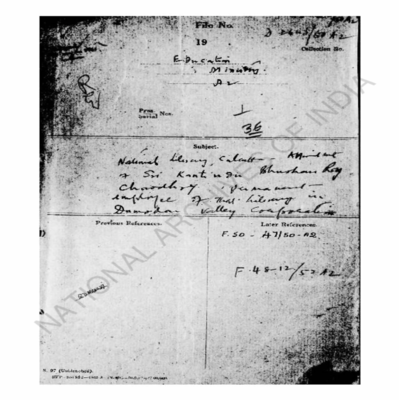 File No.
D 2645/50 A2
19
Collection No.
Education
Ministry
A2
Prog serial Nos.
1
36
Subject.
National Library, Calcutta - Appointment
of Sri Kantindu Bhushan Roy
Chowdhry permanent
employee of Nat. Library in
Damodar Valley Corporation
Previous References.
Later References.
F. 50 - 47/50-A2
F. 48-12/52 A2
NATIONAL ARCHIVES OF INDIA